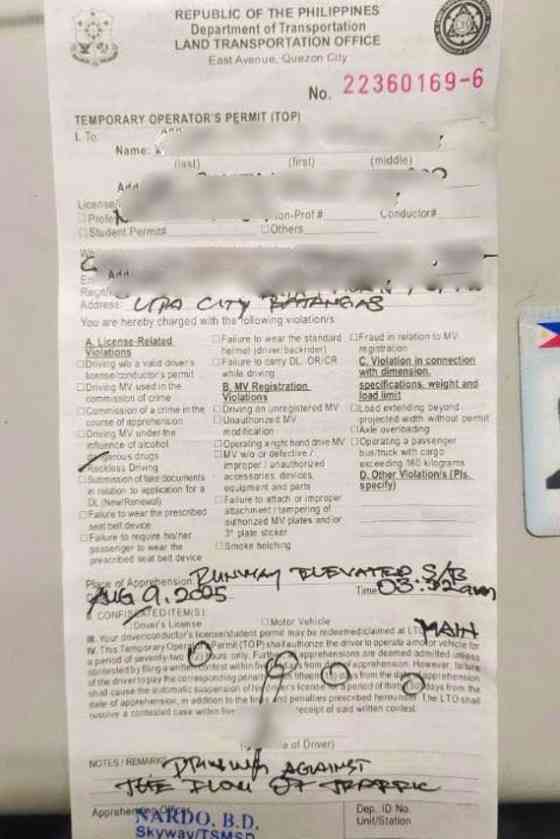 REPUBLIC OF THE PHILIPPINES
Department of Transportation
LAND TRANSPORTATION OFFICE
East Avenue, Quezon City
No. 22360169-6
TEMPORARY OPERATOR'S PERMIT (TOP)
I. To:
Name:
(last) (first) (middle)
Add
License
Profe on-Prof # Conductor#
Student Permit# Others
Add
Address: LIPA CITY BATANGAS
You are hereby charged with the following violation/s
A. License-Related Violations
Driving w/o a valid driver's license/conductor's permit
Driving MV used in the commission of crime
Commission of a crime in the course of apprehension
Driving MV under the influence of alcohol
dangerous drugs
Reckless Driving
Submission of fake documents in relation to application for a DL (New/Renewal)
Failure to wear the prescribed seat belt device
Failure to require his/her passenger to wear the prescribed seat belt device
Failure to wear the standard helmet (driver/backrider)
Failure to carry DL, OR/CR while driving
B. MV Registration Violations
Driving an unregistered MV
Unauthorized MV modification
Operating a right hand drive MV
MV w/o or defective / improper / unauthorized accessories, devices, equipment and parts
Failure to attach or improper attachment / tampering of authorized MV plates and/or 3rd plate sticker
Smoke belching
Fraud in relation to MV registration
C. Violation in connection with dimension, specifications, weight and load limit
Load extending beyond projected width without permit
Axle overloading
Operating a passenger bus/truck with cargo exceeding 160 kilograms
D. Other Violation/s (Pls. specify)
Place of Apprehension: RUNWAY ELEVATED S/B
AUG 9, 2025 Time 03:32am
II. CONFISCATED ITEM(S):
Driver's License Motor Vehicle
III. Your driver/conductor's license/student permit may be redeemed/claimed at LTO MAIN
IV. This Temporary Operator's Permit (TOP) shall authorize the driver to operate a motor vehicle for
a period of seventy-two hours only. Further apprehensions are deemed admitted unless
contested by filing a written contest within five days from date of apprehension. However, failure
of the driver to pay the corresponding penalty within fifteen days from the date of apprehension
shall cause the automatic suspension of driver's license for a period of thirty days from the
date of apprehension, in addition to the fines and penalties prescribed hereunder. The LTO shall
resolve a contested case within five receipt of said written contest.
e of Driver)
NOTES / REMARKS DRIVING AGAINST
THE FLOW OF TRAFFIC
Apprehending Officer Dep. ID No.
NARDO, B.D. Unit/Station
Skyway/TSMSD